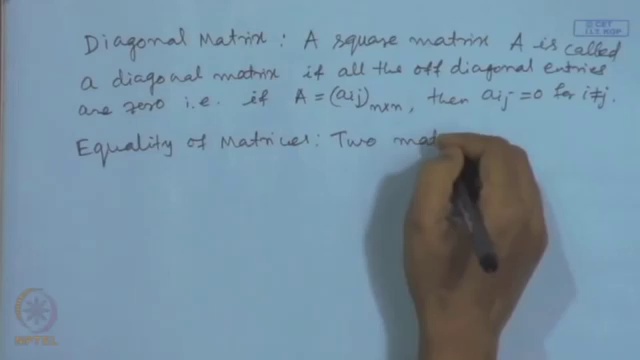 © CET
I.I.T. KGP
Diagonal Matrix : A square matrix A is called
a diagonal matrix if all the off diagonal entries
are zero i.e. if A = (aij)n×n, then aij = 0 for i≠j.
Equality of Matrices : Two mat
NPTEL